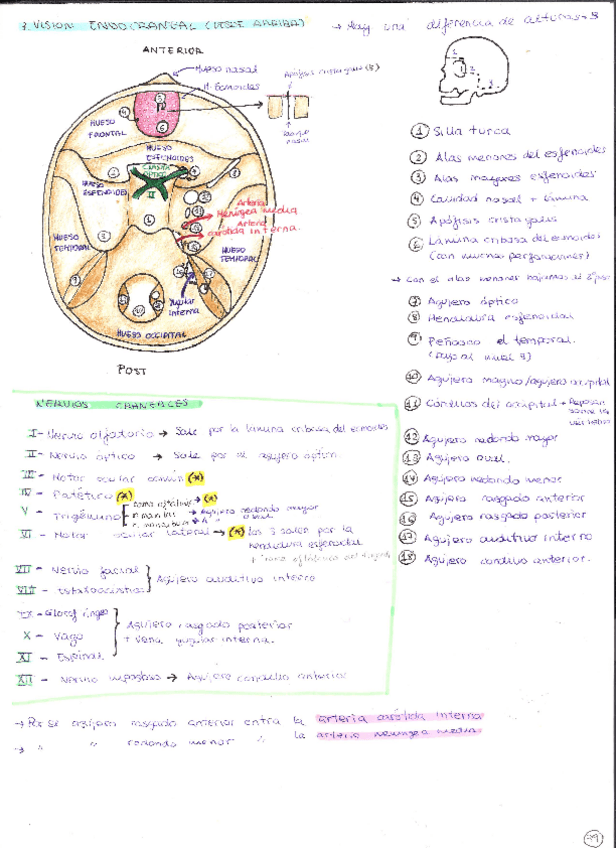 VISION ENDOCRANEAL (DESDE ARRIBA)
→ Hay una diferencia de alturas → 3
ANTERIOR
Hueso nasal
H. Etmoides
Apófisis crista galli (5)
HUESO FRONTAL
HUESO ESFENOIDES
HUESO ESFENOIDES
II
Arteria Meníngea media
Arteria carótida interna.
HUESO TEMPORAL
HUESO TEMPORAL
Yugular interna
HUESO OCCIPITAL
POST
1 Silla turca
2 Alas menores del esfenoides
3 Alas mayores esfenoides
4 Cavidad nasal + lámina
5 Apófisis crista galli
6 Lamina cribosa del etmoides
(con muchas perforaciones)
→ Con el alas menores bajamos al 2º piso
7 Agujero óptico
8 Hendidura esfenoidal
9 Peñasco el temporal.
(bajo al nivel 3)
10 Agujero magno/agujero occipital
11 Cóndilos del occipital → Reposan sobre la
12 Agujero redondo mayor
13 Agujero oval.
14 Agujero redondo menor
15 Agujero rasgado anterior
16 Agujero rasgado posterior
17 Agujero auditivo interno
18 Agujero condileo anterior.
NERVIOS CRANEALES
I - Nervio olfatorio → Sale por la lamina cribosa del etmoides
II - Nervio óptico → Sale por el agujero optico
III - Motor ocular común (*)
IV - Patético (*)
V - Trigémino
rama oftálmica → (*)
n. maxilar → Agujero redondo mayor
VI - Motor ocular lateral → (*) los 3 salen por la
hendidura esfenoidal
VII - Nervio facial
VIII - Estatoacustico
Agujero auditivo interno
IX - Glosofaringeo
X - Vago
XI - Espinal
Agujero rasgado posterior
+ vena yugular interna.
XII - Nervio hipogloso → Agujero condileo anterior
→ Por el agujero rasgado anterior entra la arteria carótida interna
→ " " redondo menor " la arteria meníngea media